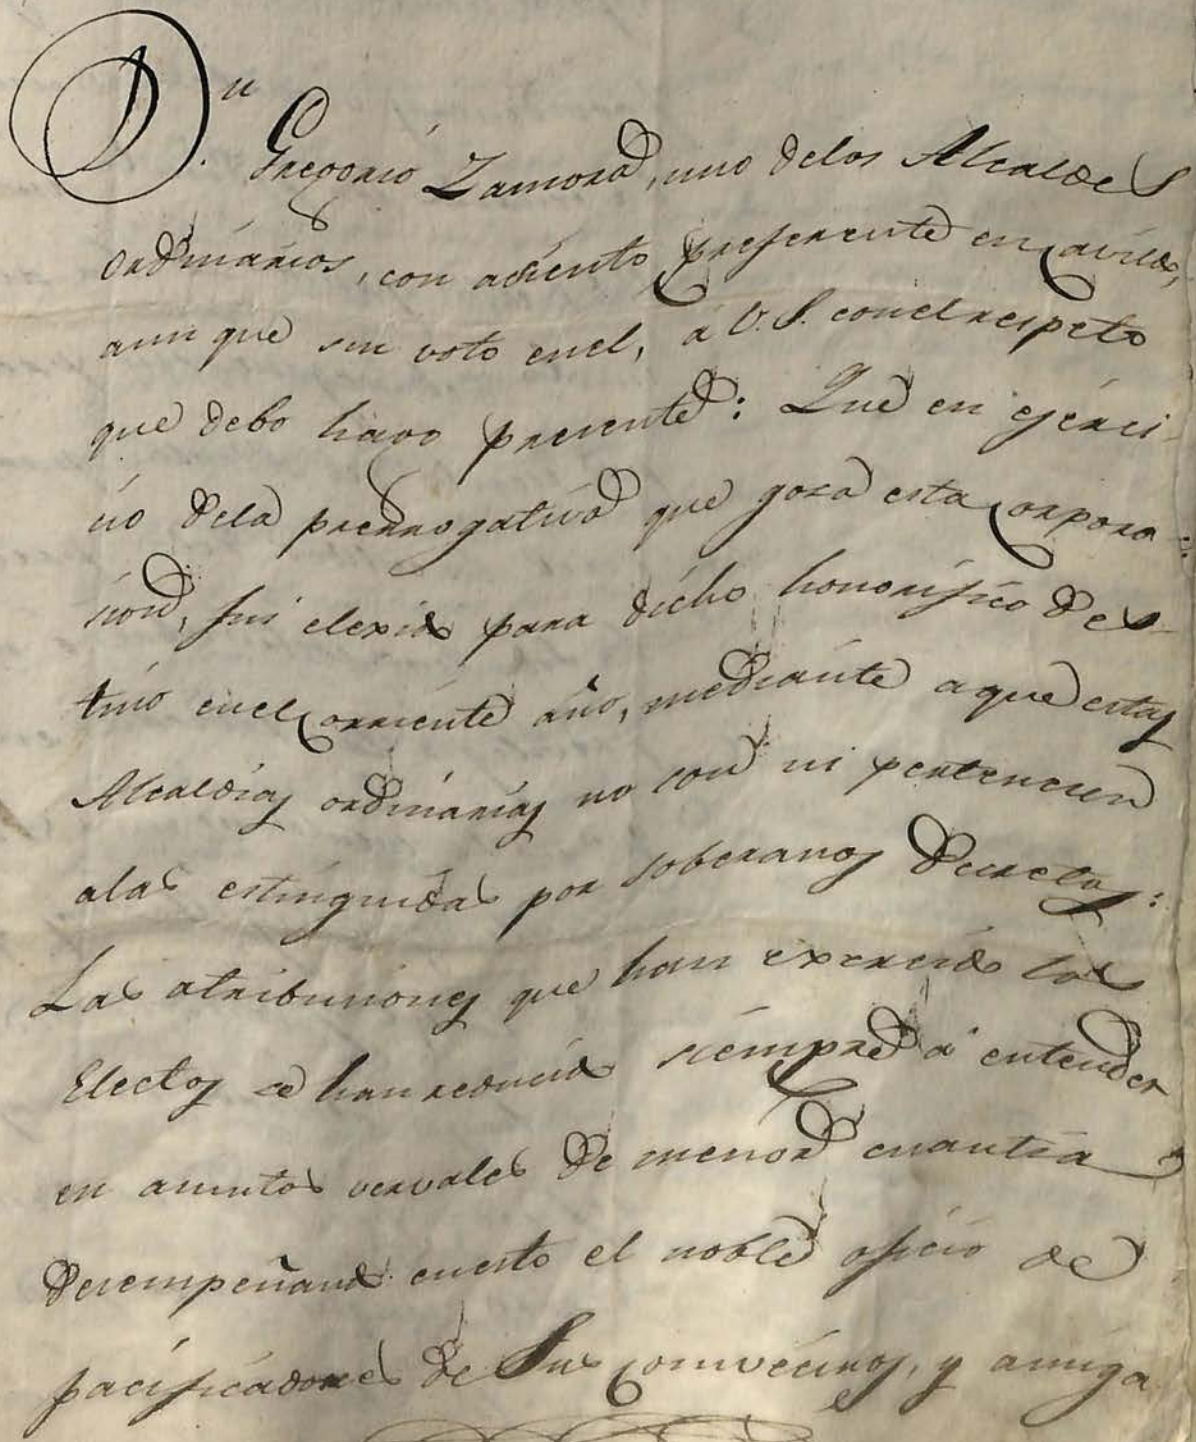 D.n Gregorio Zamora, uno delos Alcaldes
ordinarios, con asiento preferente en Cavildo,
aunque sin voto enel, á V.S. conel respeto
que debo hago presente: Que en ejerci-
cio dela prerrogativa que goza esta Corpora-
cion, fui elexido para dicho honorifico Des-
tino enel Corriente año, mediante a que estas
Alcaldias ordinarias no son ni pertenecen
alas estinguidas por soberanos Decretos:
Las atribuciones que han exercido los
Electos se han reducido siempre á entender
en asuntos vervales de menor cuantia
desempeñando enesto el noble oficio de
pacificadores de Sus Comvecinos, y amiga